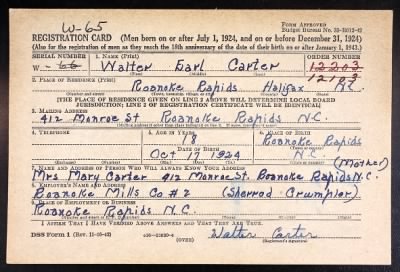 W-65
FORM APPROVED
Budget Bureau No. 33-R012-42
REGISTRATION CARD (Men born on or after July 1, 1924, and on or before December 31, 1924)
(Also for the registration of men as they reach the 18th anniversary of the date of their birth on or after January 1, 1943.)
SERIAL NUMBER 1. NAME (Print) ORDER NUMBER
W- Walter Earl Carter 12203
(First) (Middle) (Last) 12103
2. PLACE OF RESIDENCE (Print)
Roanoke Rapids Halifax N.C.
[THE PLACE OF RESIDENCE GIVEN ON LINE 2 ABOVE WILL DETERMINE LOCAL BOARD
JURISDICTION; LINE 2 OF REGISTRATION CERTIFICATE WILL BE IDENTICAL]
3. MAILING ADDRESS
412 Monroe St Roanoke Rapids N.C.
4. TELEPHONE 5. AGE IN YEARS 6. PLACE OF BIRTH
18 Roanoke Rapids
DATE OF BIRTH
Oct 17 1924 N.C.
7. NAME AND ADDRESS OF PERSON WHO WILL ALWAYS KNOW YOUR ADDRESS (Mother)
Mrs Mary Carter 412 Monroe St. Roanoke Rapids N.C.
8. EMPLOYER'S NAME AND ADDRESS
Roanoke Mills Co #2 (Sherrod Crumpler)
9. PLACE OF EMPLOYMENT OR BUSINESS
Roanoke Rapids N.C.
I AFFIRM THAT I HAVE VERIFIED ABOVE ANSWERS AND THAT THEY ARE TRUE.
DSS Form 1 (Rev. 11-16-42) (OVER) Walter Carter
(Registrant's signature)